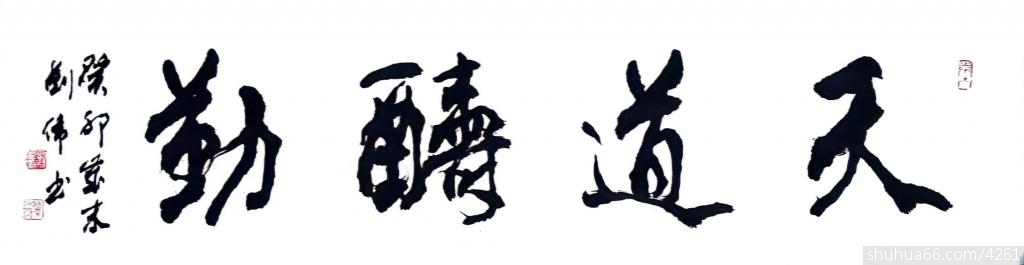 天道酬勤
癸卯岁末
刘伟书
shuhua66.com/4261